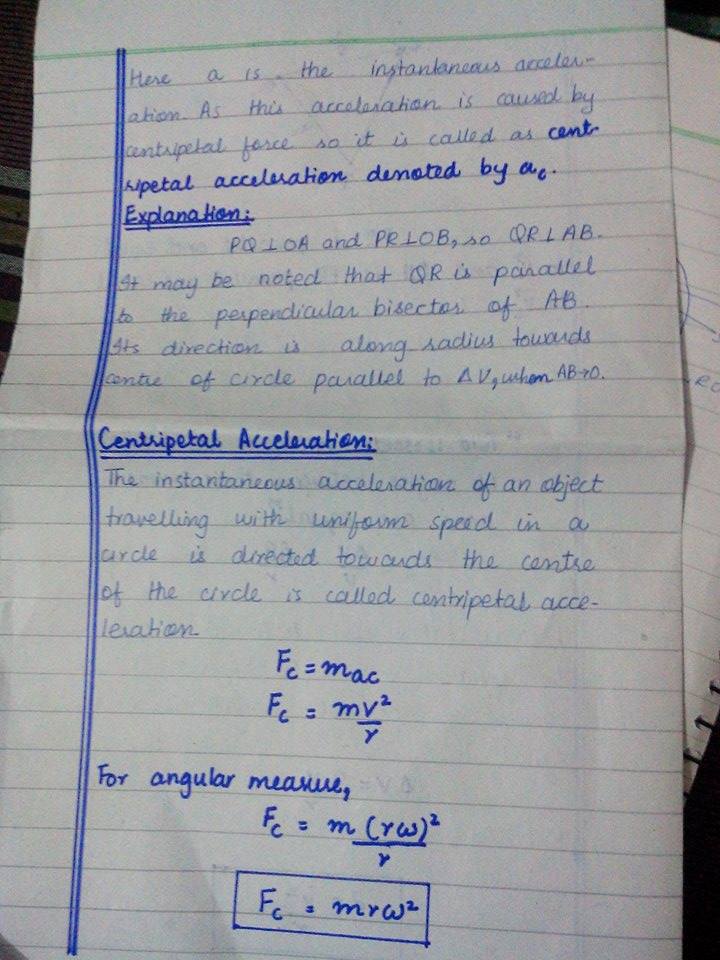 Here a is the instantaneous acceler-
ation. As this acceleration is caused by
centripetal force so it is called as cent-
ripetal acceleration denoted by ac.
Explanation:
PQ⊥OA and PR⊥OB, so QR⊥AB.
It may be noted that QR is parallel
to the perpendicular bisector of AB.
Its direction is along radius towards
centre of circle parallel to ΔV, when AB→0.
Centripetal Acceleration:
The instantaneous acceleration of an object
travelling with uniform speed in a
circle is directed towards the centre
of the circle is called centripetal acce-
leration.
Fc = mac
Fc = mv²/r
For angular measure,
Fc = m(rω)²/r
Fc = mrω²